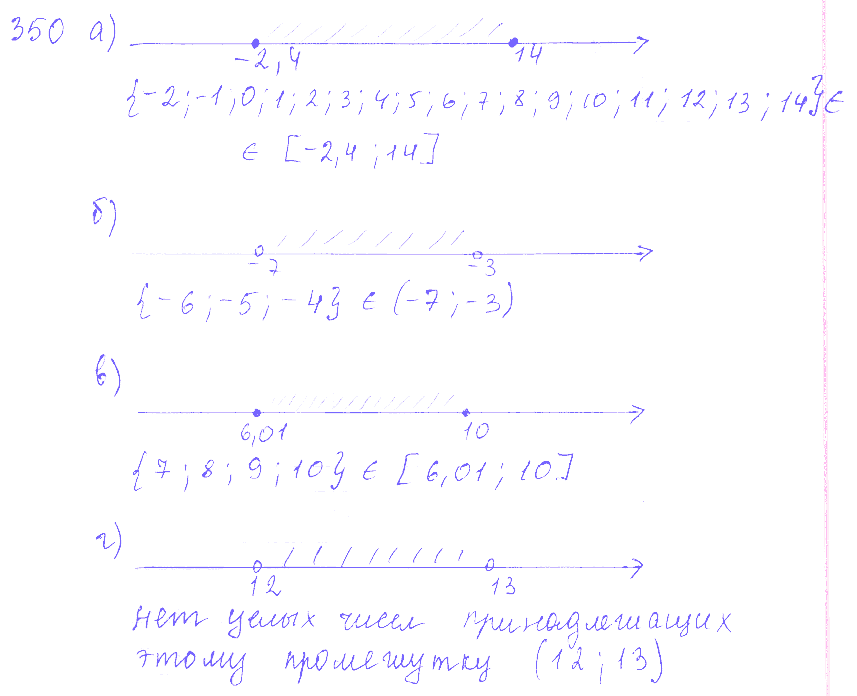 350 а)
-2,4 14
{-2; -1; 0; 1; 2; 3; 4; 5; 6; 7; 8; 9; 10; 11; 12; 13; 14} ∈
∈ [-2,4; 14]
б)
-7 -3
{-6; -5; -4} ∈ (-7; -3)
в)
6,01 10
{7; 8; 9; 10} ∈ [6,01; 10]
г)
12 13
нет целых чисел принадлежащих
этому промежутку (12; 13)